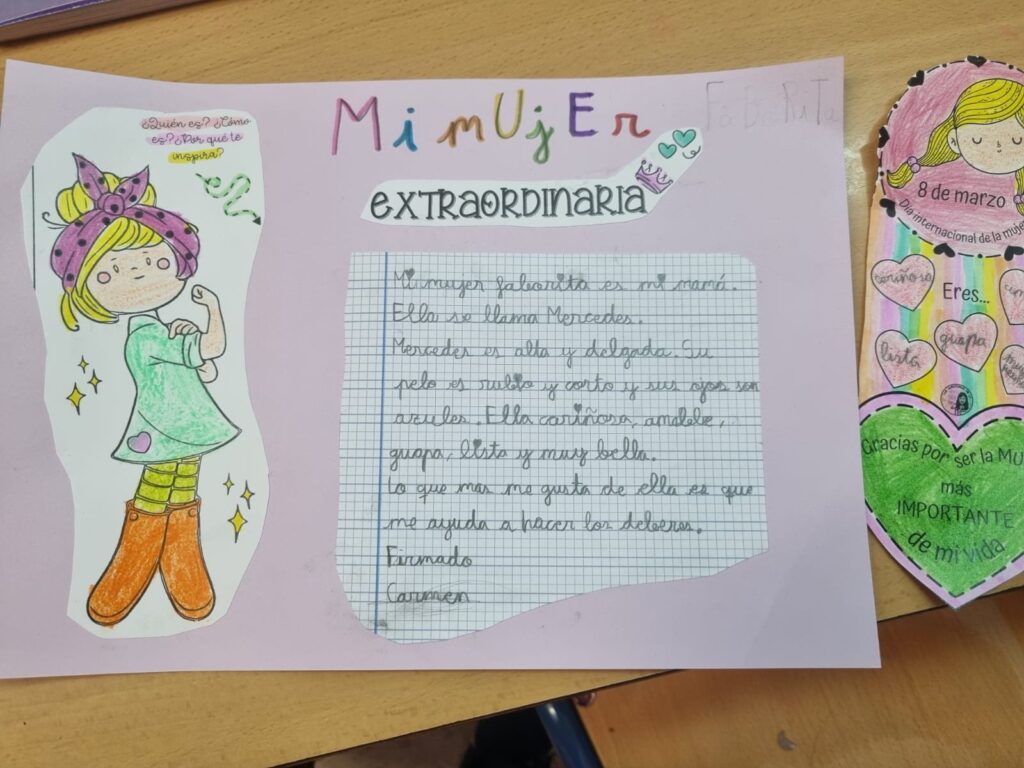 ¿Quién es? ¿Cómo
es? ¿Por qué te
inspira?
Mi mUjEr
FaBoRiTa
EXTRAORDINARIA
Mi mujer faborita es mi mamá.
Ella se llama Mercedes.
Mercedes es alta y delgada. Su
pelo es rubio y corto y sus ojos son
azules. Ella cariñosa, amable,
guapa, lista y muy bella.
Lo que mas me gusta de ella es que
me ayuda a hacer los deberes.
Firmado
Carmen
8 de marzo
Día internacional de la muje
Eres...
cariñosa
guapa
lista
Gracias por ser la MU
más
IMPORTANTE
de mi vida